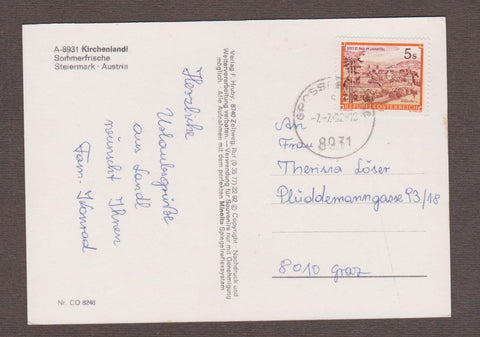 A-8931 Kirchenlandl
Sommerfrische
Steiermark - Austria
Verlag F. Hruby, 8740 Zeltweg, Ruf (0 35 77) 22 92 © Copyright - Nachdruck und
Weiterverarbeitung verboten. — Verwendung für Souvenirs nur mit Genehmigung
möglich. Alle Aufnahmen mit dem perfekten Minolta Spiegelreflexsystem
Herzliche
Urlaubsgrüße
aus Landl
wünscht Ihnen
Fam. Konrad
Nr. CO 8246
5s
REPUBLIK ÖSTERREICH
8931
An
Frau
Theresia Löser
Plüddemanngasse 93/18
8010 Graz